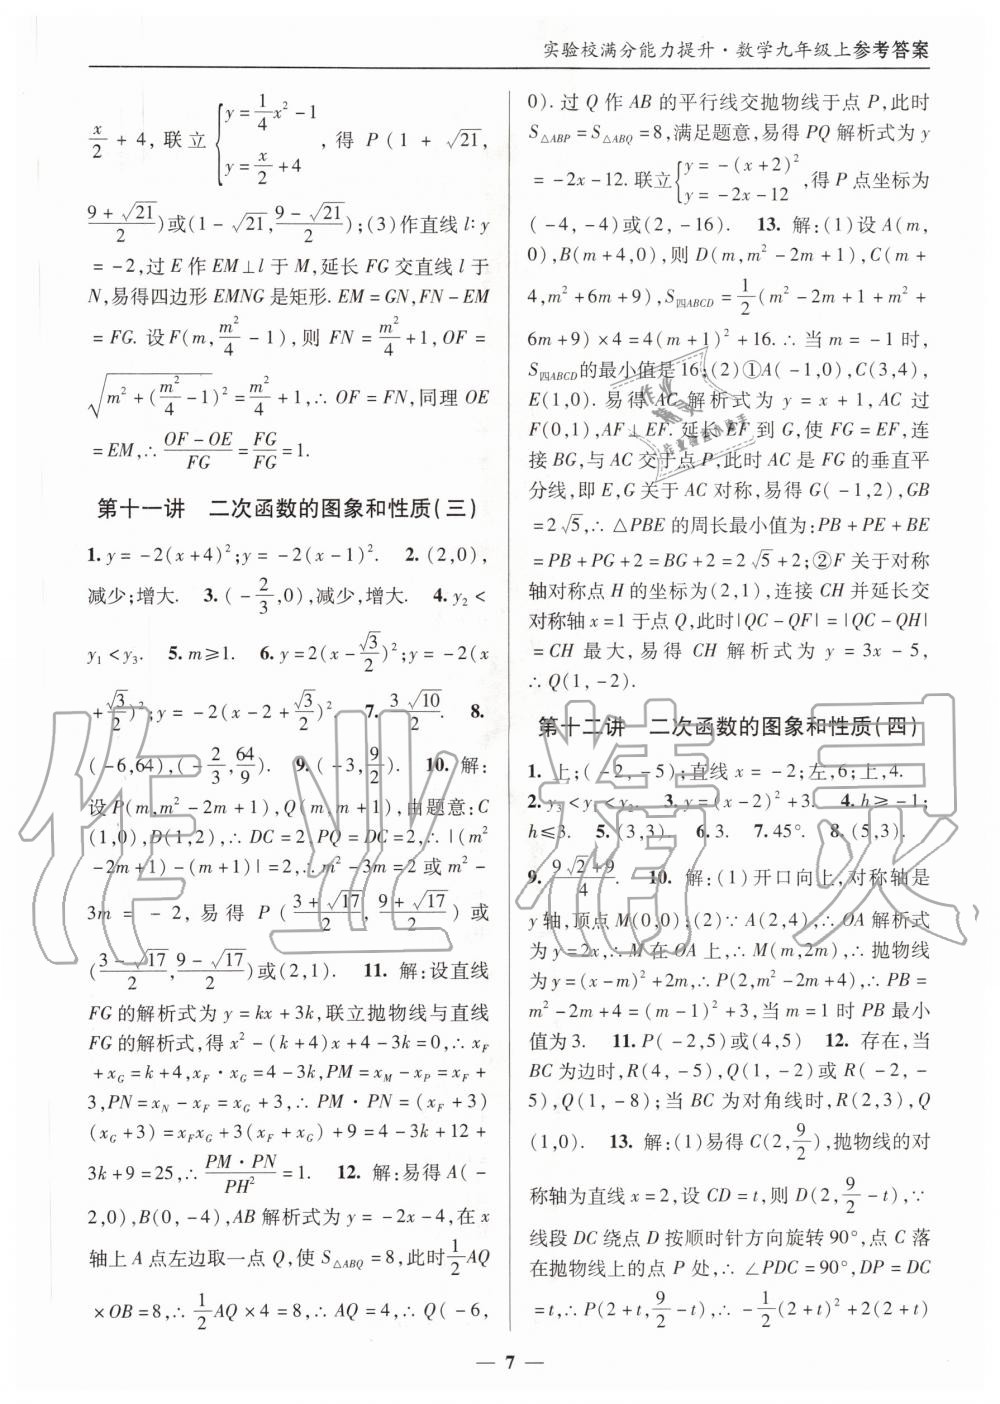 实验校满分能力提升·数学九年级上参考答案
x/2+4,联立{y=1/4x²-1, y=x/2+4},得 P(1+√21,
(9+√21)/2)或(1-√21,(9-√21)/2);(3)作直线 l:y
=-2,过 E 作 EM⊥l 于 M,延长 FG 交直线 l 于
N,易得四边形 EMNG 是矩形. EM=GN,FN-EM
=FG. 设 F(m,m²/4-1),则 FN=m²/4+1,OF=
√(m²+(m²/4-1)²)=m²/4+1,∴OF=FN,同理 OE
=EM,∴(OF-OE)/FG=FG/FG=1.
第十一讲 二次函数的图象和性质(三)
1. y=-2(x+4)²;y=-2(x-1)². 2. (2,0),
减少;增大. 3. (-2/3,0),减少,增大. 4. y₂<
y₁<y₃. 5. m≥1. 6. y=2(x-√3/2)²;y=-2(x
+√3/2)²;y=-2(x-2+√3/2)². 7. 3√10/2. 8.
(-6,64),(-2/3,64/9). 9. (-3,9/2). 10. 解:
设 P(m,m²-2m+1),Q(m,m+1),由题意:C
(1,0),D(1,2),∴DC=2,PQ=DC=2,∴|(m²
-2m+1)-(m+1)|=2,∴m²-3m=2 或 m²-
3m=-2,易得 P((3+√17)/2,(9+√17)/2)或
((3-√17)/2,(9-√17)/2)或(2,1). 11. 解:设直线
FG 的解析式为 y=kx+3k,联立抛物线与直线
FG 的解析式,得 x²-(k+4)x+4-3k=0,∴x_F
+x_G=k+4,x_F·x_G=4-3k,PM=x_M-x_P=x_F+
3,PN=x_N-x_F=x_G+3,∴PM·PN=(x_F+3)
(x_G+3)=x_Fx_G+3(x_F+x_G)+9=4-3k+12+
3k+9=25,∴PM·PN/PH²=1. 12. 解:易得 A(-
2,0),B(0,-4),AB 解析式为 y=-2x-4,在 x
轴上 A 点左边取一点 Q,使 S△ABQ=8,此时1/2AQ
×OB=8,∴1/2AQ×4=8,∴AQ=4,∴Q(-6,
0). 过 Q 作 AB 的平行线交抛物线于点 P,此时
S△ABP=S△ABQ=8,满足题意,易得 PQ 解析式为 y
=-2x-12. 联立{y=-(x+2)², y=-2x-12},得 P 点坐标为
(-4,-4)或(2,-16). 13. 解:(1)设 A(m,
0),B(m+4,0),则 D(m,m²-2m+1),C(m+
4,m²+6m+9),S四ABCD=1/2(m²-2m+1+m²+
6m+9)×4=4(m+1)²+16.∴当 m=-1 时,
S四ABCD的最小值是 16;(2)①A(-1,0),C(3,4),
E(1,0). 易得 AC 解析式为 y=x+1,AC 过
F(0,1),AF⊥EF. 延长 EF 到 G,使 FG=EF,连
接 BG,与 AC 交于点 P,此时 AC 是 FG 的垂直平
分线,即 E,G 关于 AC 对称,易得 G(-1,2),GB
=2√5,∴△PBE 的周长最小值为:PB+PE+BE
=PB+PG+2=BG+2=2√5+2;②F 关于对称
轴对称点 H 的坐标为(2,1),连接 CH 并延长交
对称轴 x=1 于点 Q,此时|QC-QF|=|QC-QH|
=CH 最大,易得 CH 解析式为 y=3x-5,
∴Q(1,-2).
第十二讲 二次函数的图象和性质(四)
1. 上;(-2,-5);直线 x=-2;左,6;上,4.
2. y₃<y₁<y₂. 3. y=(x-2)²+3. 4. h≥-1;
h≤3. 5. (3,3). 6. 3. 7. 45°. 8. (5,3).
9. (9√2+9)/4. 10. 解:(1)开口向上,对称轴是
y 轴,顶点 M(0,0);(2)∵A(2,4),∴OA 解析式
为 y=2x,∴M 在 OA 上,∴M(m,2m)∴抛物线
为 y=(x-m)²+2m,∴P(2,m²-2m+4)∴PB=
m²-2m+4=(m-1)²+3,当 m=1 时 PB 最小
值为 3. 11. P(-2,5)或(4,5) 12. 存在,当
BC 为边时,R(4,-5),Q(1,-2)或 R(-2,-
5),Q(1,-8);当 BC 为对角线时,R(2,3),Q
(1,0). 13. 解:(1)易得 C(2,9/2),抛物线的对
称轴为直线 x=2,设 CD=t,则 D(2,9/2-t),∵
线段 DC 绕点 D 按顺时针方向旋转 90°,点 C 落
在抛物线上的点 P 处,∴∠PDC=90°,DP=DC
=t,∴P(2+t,9/2-t),∴-1/2(2+t)²+2(2+t)
— 7 —
作业精灵